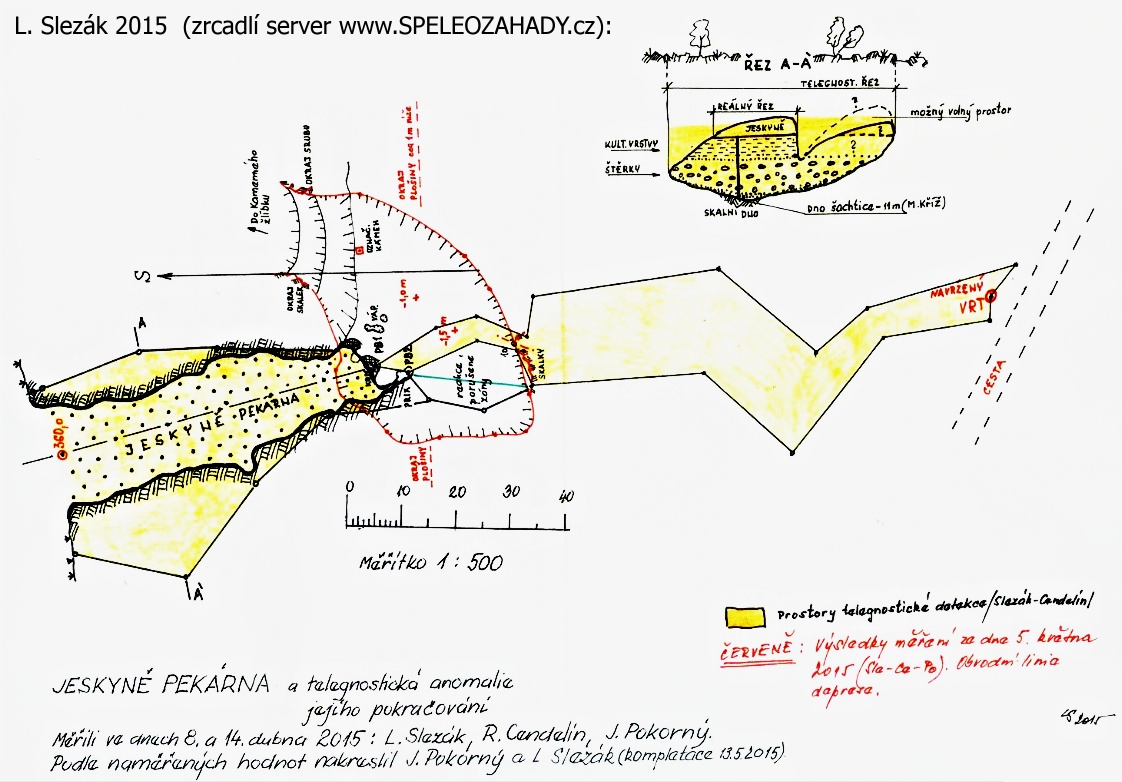 L. Slezák 2015 (zrcadlí server www.SPELEOZAHADY.cz):
ŘEZ A-À
TELEGNOST. ŘEZ
REÁLNÝ ŘEZ
?
možný volný prostor
JESKYNĚ
?
?
KULT. VRSTVY
ŠTĚRKY
SKALNÍ DNO
DNO šachtice -11m (M. KŘÍŽ)
OKRAJ
PLOŠINY cca 1m níže
OKRAJ SRUBU
Do Kamenného
žlíbku
OZNAČ.
KÁMEN
S
OKRAJ
SKALEK
-1,0 m
+
-1,5 m
+
VÁP.
PB1
PB2
A
reakce
porušené
zóny
SKALKY
NAVRŽENÝ
VRT
CESTA
JESKYNĚ PEKÁRNA
360,0
OKRAJ
PLOŠINY
À
0 10 20 30 40
Měřítko 1 : 500
Prostory telegnostické detekce /Slezák-Cendelín/
ČERVENĚ : Výsledky měření ze dne 5. května
2015 (Sle-Ce-Po). Obvodní linie
deprese.
JESKYNĚ PEKÁRNA a telegnostická anomalie
jejího pokračování
Měřili ve dnech 8. a 14. dubna 2015 : L. Slezák, R. Cendelín, J. Pokorný.
Podle naměřených hodnot nakreslil J. Pokorný a L Slezák (kompletace 13.5.2015).
2015